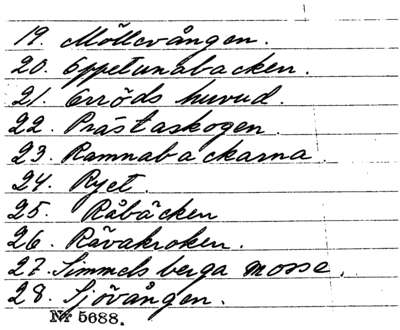 19. Möllevången.
20. Oppetunabacken.
21. Orröds huvud.
22. Prästaskogen.
23. Ramnabackarna.
24. Ryet.
25. Råbäcken
26. Rävakroken.
27. Simmelsberga mosse.
28. Sjövången.
Nr 5688.